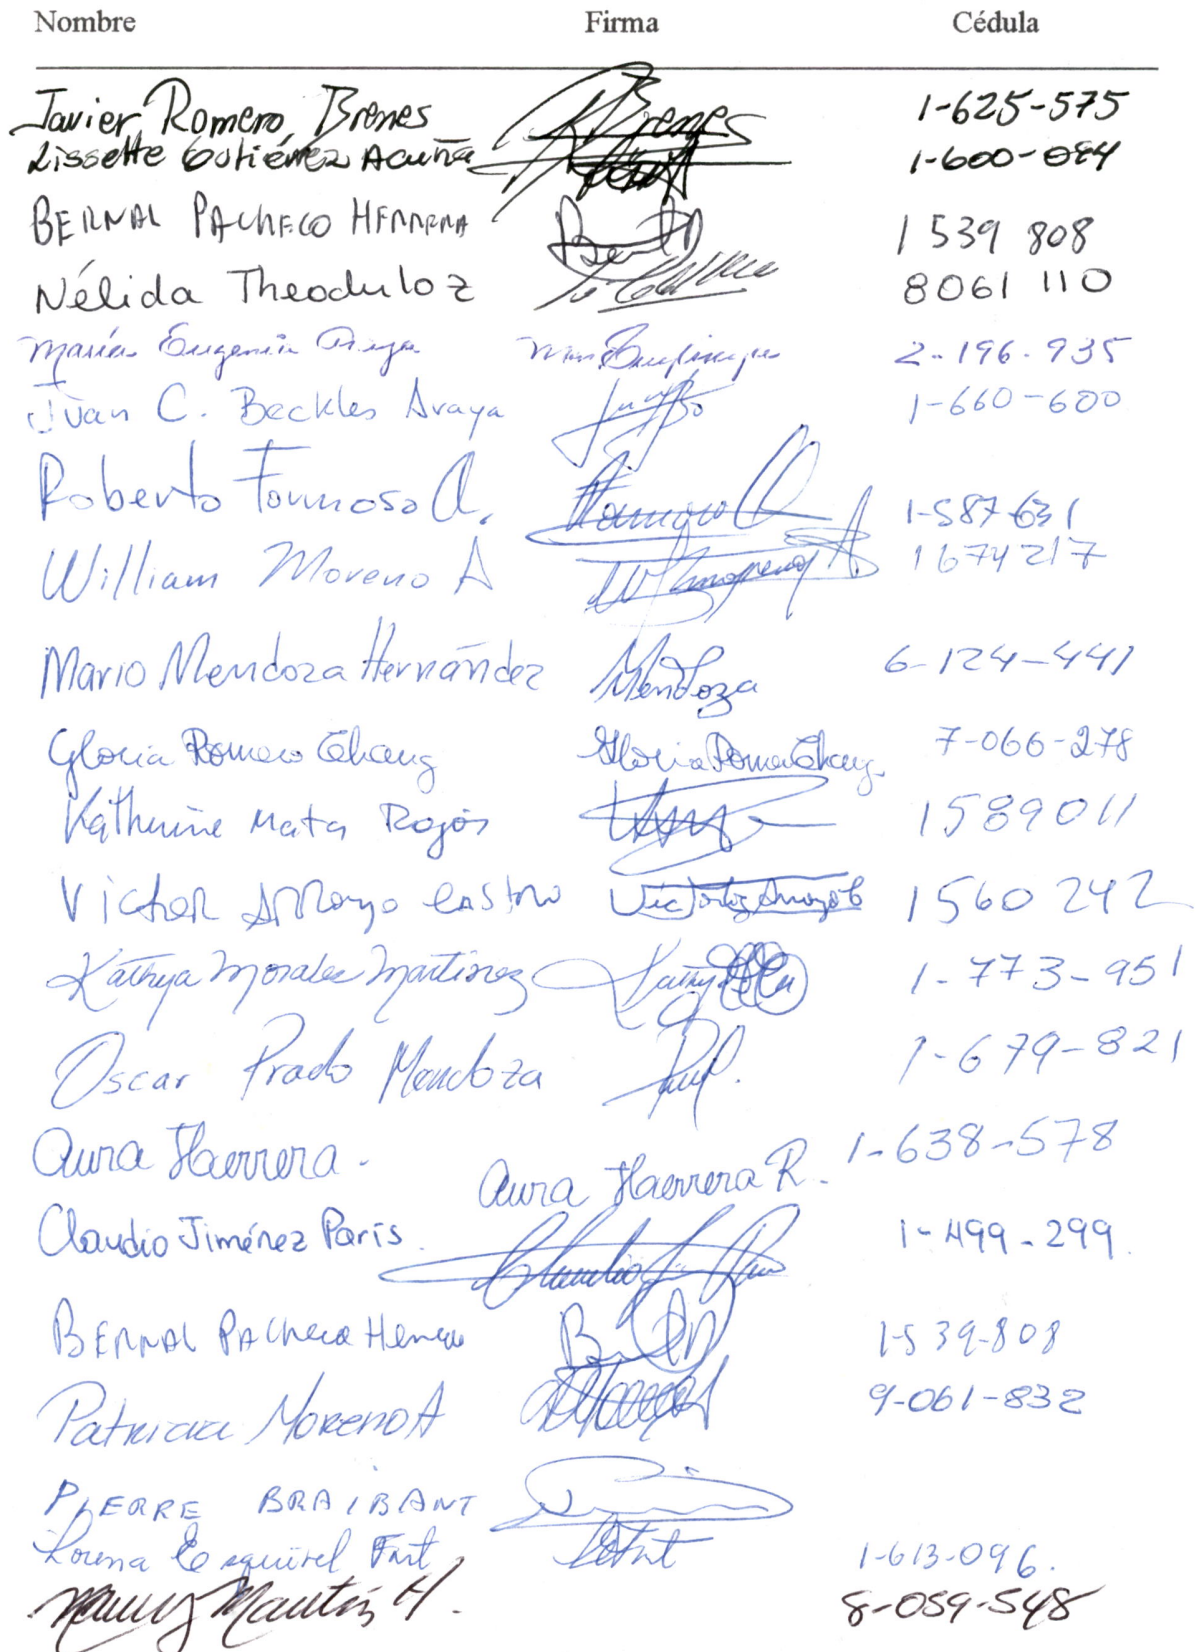 Nombre Firma Cédula
Javier Romero Brenes Brenes 1-625-575
Lissette Gutiérrez Acuña 1-600-094
BERNAL PACHECO HERRERA 1 539 808
Nélida Theoduloz 8061 110
María Eugenia 2-196-935
Juan C. Beckles Araya 1-660-600
Roberto Formoso A. 1-587 631
William Moreno A 1 674 217
Mario Mendoza Hernández Mendoza 6-124-441
Gloria Romero Echang Gloria Romero Echang 7-066-278
Katherine Mata Rojas 1589011
Victor Arroyo Castro Victor Arroyo C 1560 242
Kathya Morales Martínez Kathy 1-773-951
Oscar Prado Mendoza 1-679-821
Aura Haerrera. Aura Haerrera R. 1-638-578
Claudio Jiménez París. Claudio 1-499-299.
BERNAL PACheco Herrera 1-539-808
Patricia Moreno A 9-061-832
PIERRE BRAIBANT
Lorena Esquivel Font 1-613-096.
Nancy Mantín H. 8-059-548